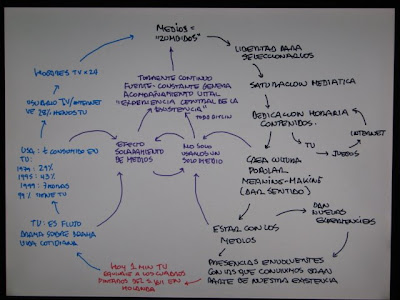 MEDIOS =
"ZUMBIDOS"
LIBERTAD PARA
SELECCIONARLOS
SATURACION MEDIATICA
DEDICACION HORARIA
CONTENIDOS.
INTERNET
TV
JUEGOS
CREA CULTURA
POPULAR
MEANING-MAKING
(DAR SENTIDO)
DAN
NUEVAS
EXPERIENCIAS
ESTAR CON LOS
MEDIOS
PRESENCIAS ENVOLVENTES
CON LAS QUE CONVIVIMOS ERAN
PARTE DE NUESTRA EXISTENCIA
TORRENTE CONTINUO
FUERTE-CONSTANTE GENERA
ACOMPAÑAMIENTO VITAL
"EXPERIENCIA CENTRAL DE LA
EXISTENCIA"
TODD GITLIN
EFECTO
SOLAPAMIENTO
DE MEDIOS
NO SOLO
USAMOS UN
SOLO MEDIO
HOGARES TV x 24
TV/INTERNET
VE 25% MENOS TV
USA: % CONSUMIDO EN
TV:
1979: 29%
1995: 43%
1999: 7 HORAS
99% TIENE TV
TV: ES FLUJO
DRAMA SOBRE DRAMA
VIDA COTIDIANA
HOY 1 MIN TV
EQUIVALE A LOS CUADROS
PINTADOS DEL S. XVII EN
HOLANDA